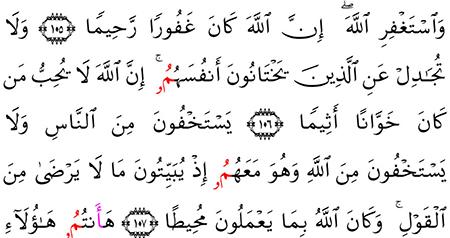 وَٱسْتَغْفِرِ ٱللَّهَۖ إِنَّ ٱللَّهَ كَانَ غَفُورًا رَّحِيمًا ۝١٠٥ وَلَا
تُجَٰدِلْ عَنِ ٱلَّذِينَ يَخْتَانُونَ أَنفُسَهُمُۥٓۚ إِنَّ ٱللَّهَ لَا يُحِبُّ مَن
كَانَ خَوَّانًا أَثِيمًا ۝١٠٦ يَسْتَخْفُونَ مِنَ ٱلنَّاسِ وَلَا
يَسْتَخْفُونَ مِنَ ٱللَّهِ وَهْوَ مَعَهُمُۥٓ إِذْ يُبَيِّتُونَ مَا لَا يَرْضَىٰ مِنَ
ٱلْقَوْلِۚ وَكَانَ ٱللَّهُ بِمَا يَعْمَلُونَ مُحِيطًا ۝١٠٧ هَٰأَنتُمُۥ هَٰٓؤُلَآءِ